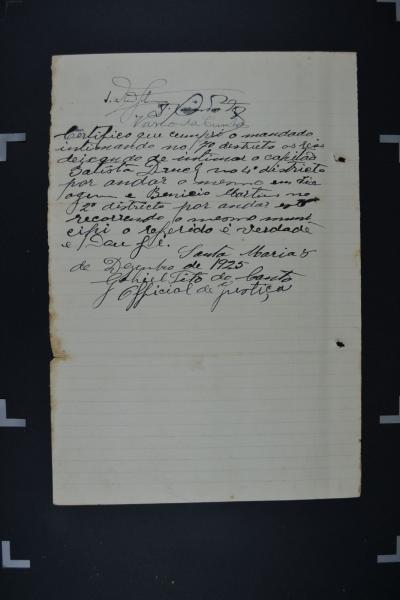 Vasco da Cunha
Certifico que cumpri o mandado
intimando no 7º districto os réos
deixando de intimar o capitão
Batista Druck no 4º districto
por andar o mesmo em via
gem e Benicio Martin no
2º districto por andar
recorrendo o mesmo muni
cipi o referido é verdade
e Dou fé.
Santa Maria 5
de Dezembro de 1925
Gabriel Tito do Canto
Official de justiça